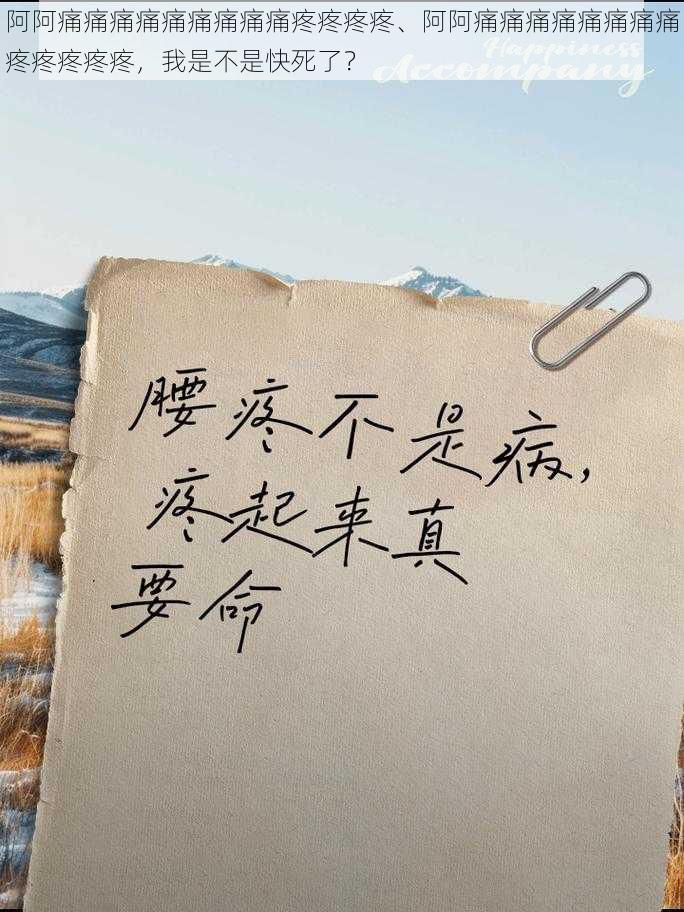 阿阿痛痛痛痛痛痛痛痛痛疼疼疼疼、阿阿痛痛痛痛痛痛痛痛
疼疼疼疼疼，我是不是快死了？
Happiness
Accompany
腰疼不是病,
疼起来真
要命